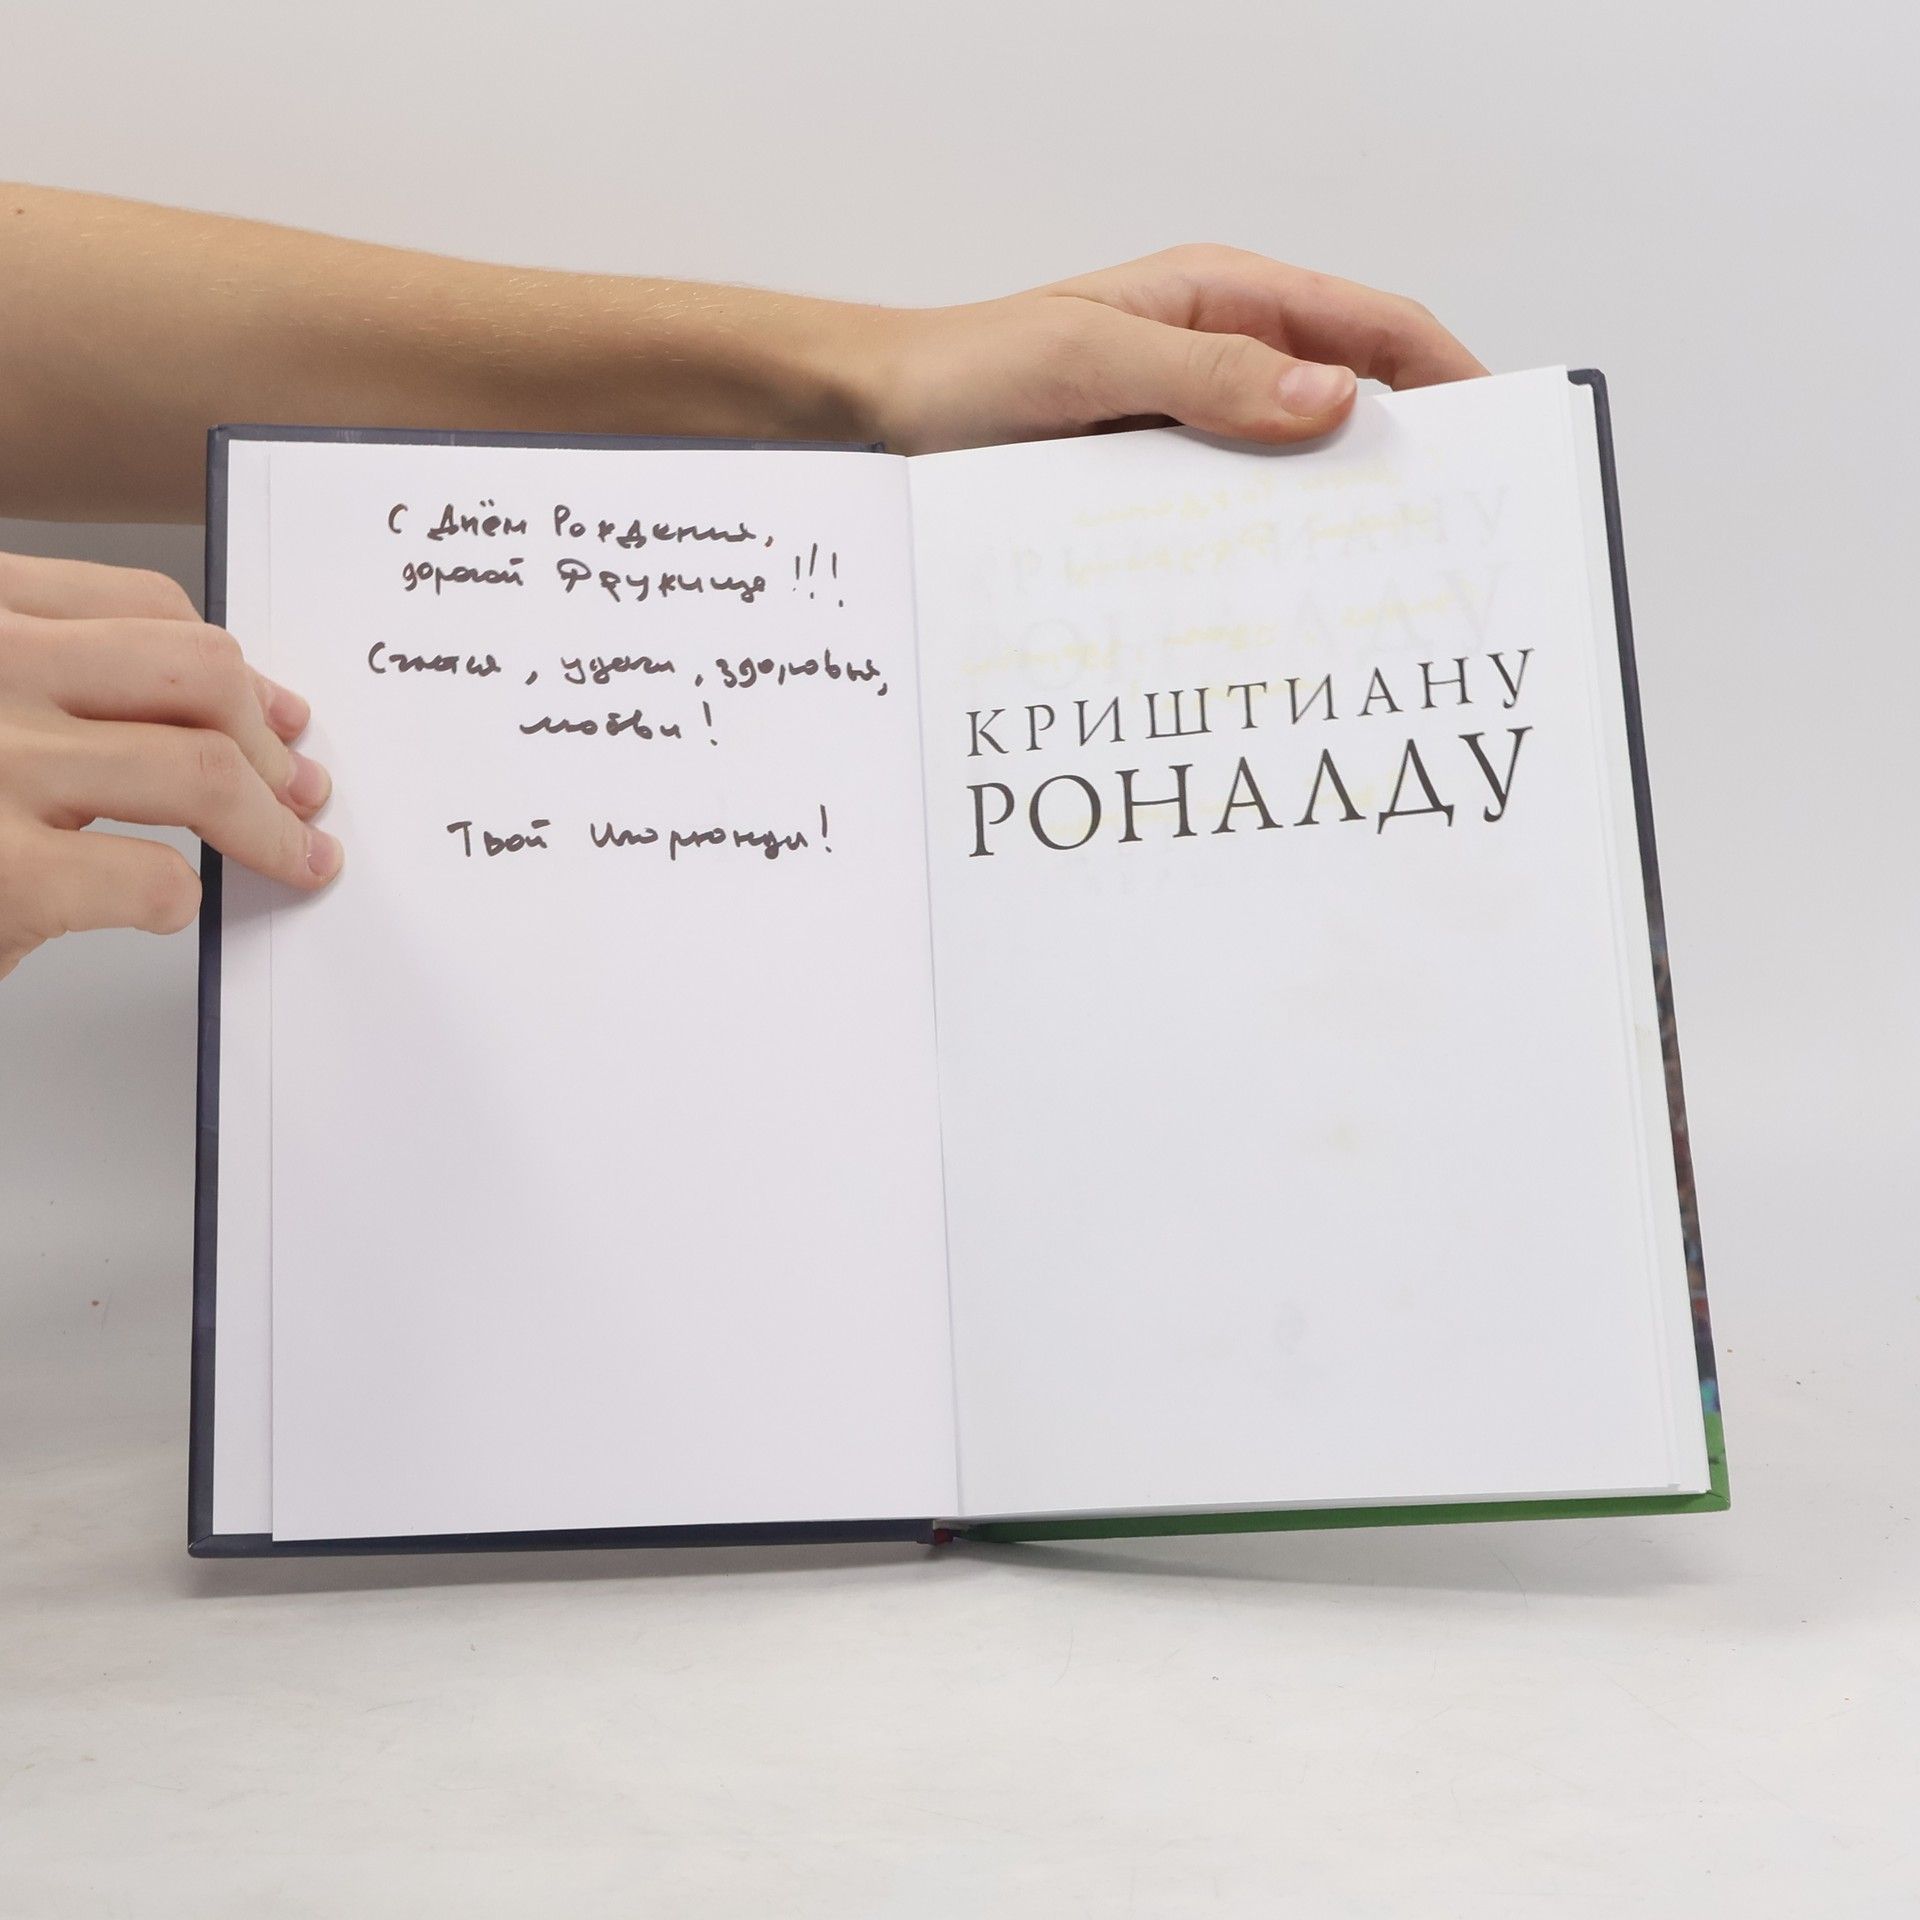 С Днём Рождения,
дорогой Фрукище!!!
Счастья, удачи, здоровья,
любви!
Твой
КРИШТИАНУ
РОНАЛДУ